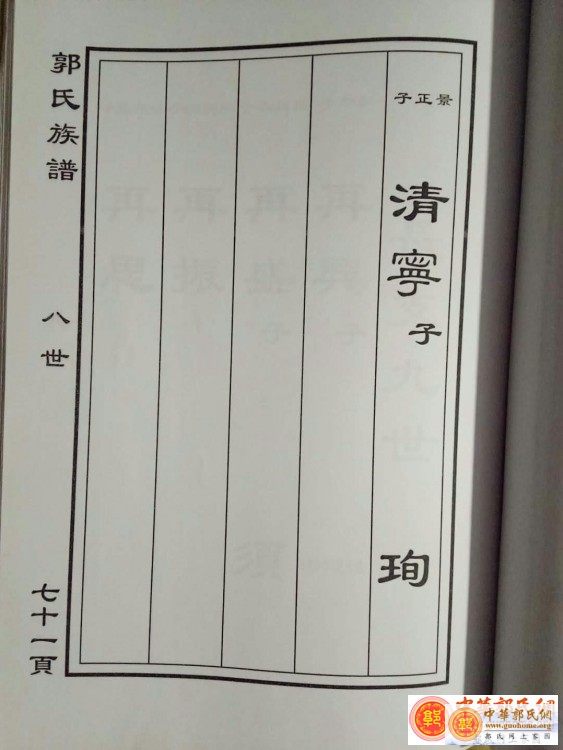 景正子
清寧子
珣
郭氏族譜
八世
七十一頁
中華郭氏網
www.guohome.org
郭氏网上家园